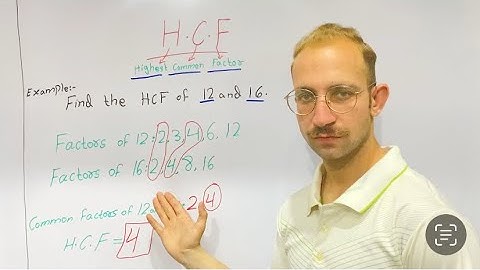 H.C.F
Highest Common Factor
Example:-
Find the HCF of 12 and 16.
Factors of 12: 2, 3, 4, 6, 12
Factors of 16: 2, 4, 8, 16
Common Factors of 12 2, 4
H.C.F = 4